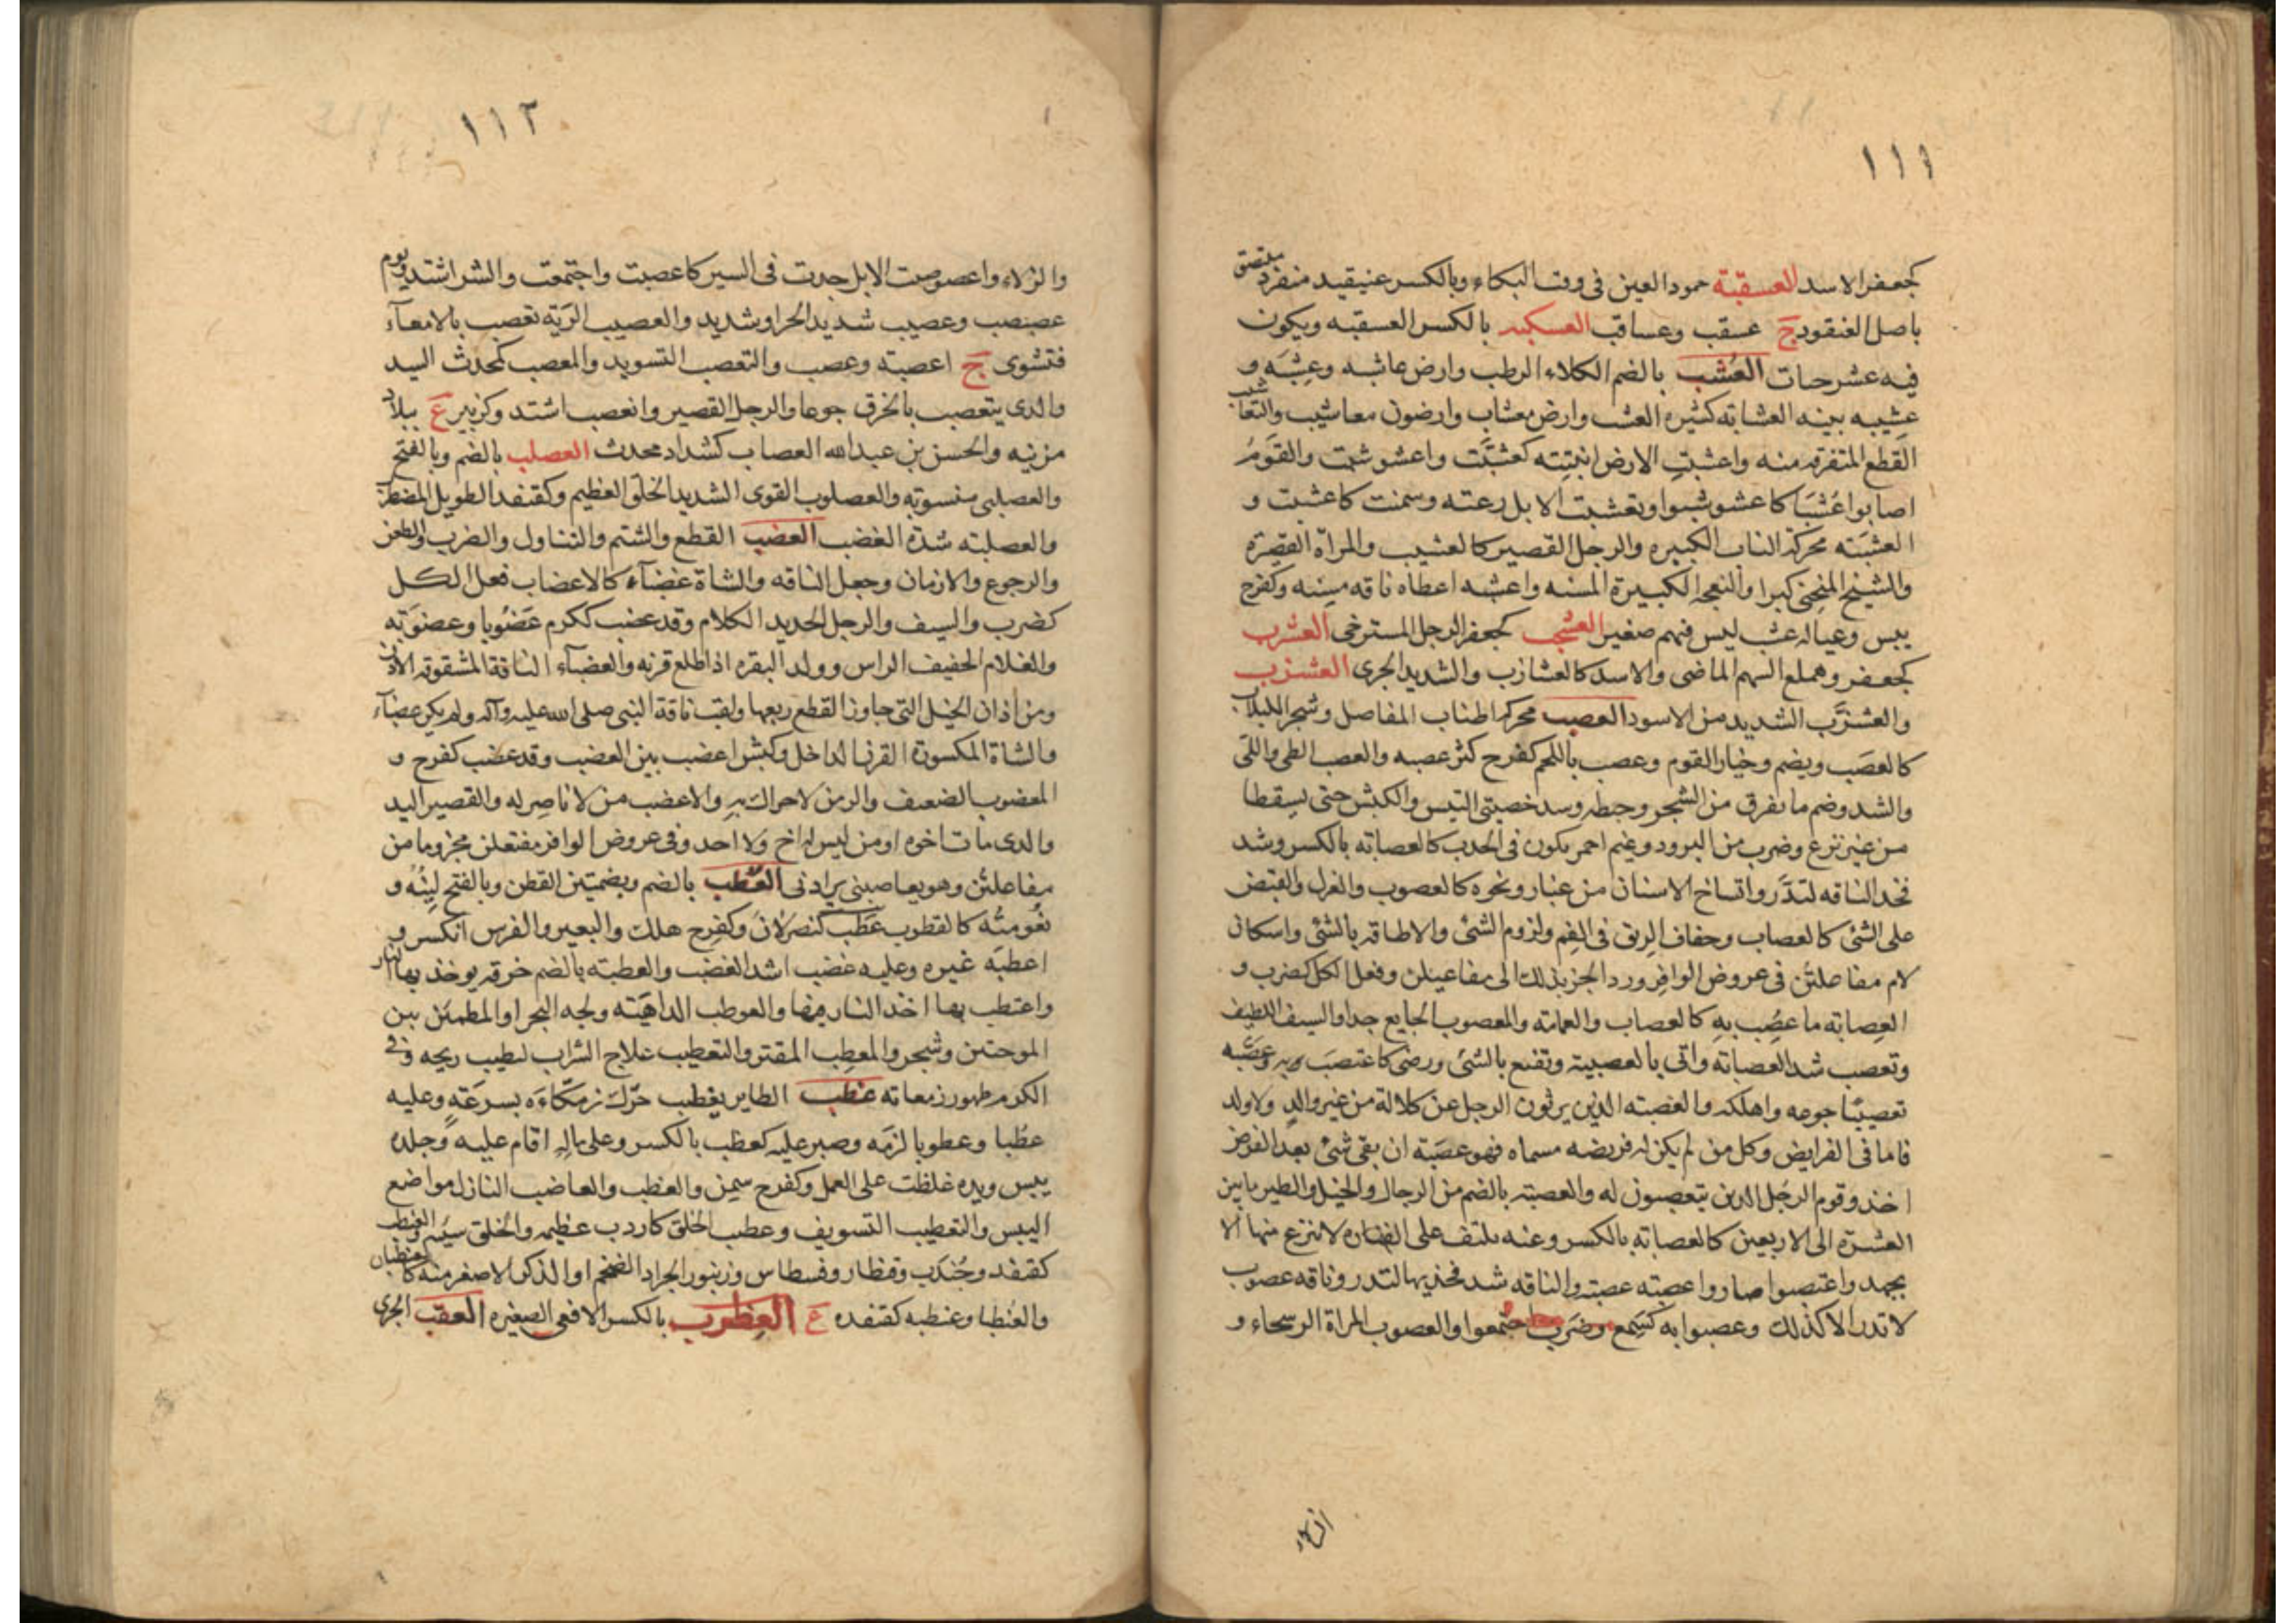 ١١١
كجعفر الاسد العسقبة جمود العين فى وقت البكاء وبالكسر عنيقيد منفرد يلتصق
باصل العنقود ج عسقب وعساقب العسكبه بالكسر العسقبه ويكون
فيه عشر حبات العُشب بالضم الكلاء الرطب وارض عاشبه وعشِبَه و
عشيبه بينه العشابه كثيره العشب وارض معشاب وارضون معاشيب والتعاشيب
القطع المتفرقه منه واعشبتِ الارض انبتته كعشّبَت واعشوشبت والقومُ
اصابوا عُشبًا كاعشوشبوا وتعشبت الابل رعته وسمنت كاعشبت و
العشبَه محركة الناب الكبيره والرجل القصير كالعشيب والمراة القصيرة
والشيخ المنحنى كبرا والنعجه الكبيرة المسنه واعشبه اعطاه ناقه مسِنه وكفرح
يبس وعياله عشب ليس فيهم صغير العشجب كجعفر الرجل المسترخى العشرب
كجعفر وهملع السهم الماضى والاسد كالعشارب والشديد الجرى العشزب
والعشزَّب الشديد من الاسود العصب محركه اطناب المفاصل وشجر اللبلاب
كالعصَب ويضم وخيار القوم وعصب باللحم كفرح كثر عصبه والعصب الطى واللى
والشد وضم ما تفرق من الشجر وخبطه وسد خصيتى التيس والكبش حتى يسقطا
من غير نزع وضرب من البرود وغيم احمر يكون فى الجدب كالعصابه بالكسر وشد
فخد الناقه لتدَّر واتساخ الاسنان من غبار ونحوه كالعصوب والغزل والقبض
على الشئ كالعصاب وجفاف الريق فى الفِم ولزوم الشئ والاطاقه بالشئ واسكان
لام مفاعلتُن فى عروض الوافر ورد الجزء بذلك الى مفاعيلن وفعل الكل كضرب و
العِصابه ما عصُب بهِ كالعصاب والعمامه والمعصوب الجايع جدا والسيف اللطيف
وتعصب شد العصبابه واتى بالعصبية وتقنع بالشئ ورضى كاعتصبَ به وعصّبه
تعصيبًا جوعه واهلكه والعصبته الذين يرثون الرجل عن كلالة من غير والدٍ ولا ولد
فاما فى الفرايض وكل من لم يكن له فريضه مسماه فهو عصَبَة ان بقى شئ بعد الفرض
اخذ وقوم الرجُل الذين يتعصبون له والعصبته بالضم من الرجال والخيل والطير ما بين
العشرَة الى الاربعين كالعصابه بالكسر وعنه تلتف على القتاده لا تنزع منها الا
بجهد واعتصبوا صاروا عصبته عصبته والناقه شد فخذيها لتدر وناقه عصوب
لا تدر الا كذلك وعصبوا به كسَمِع وضَرَب اجتمعوا والعصوب المراة الرسحاء و
الزلاء
١١٢
والزلاء واعصوصبت الابل جدت فى السير كاعصبت واجتمعت والشر اشتد ويوم
عصبصب وعصيب شديد الحر او شديد والعصيب الرَيّة تعصب بالامعآء
فتشوى ج اعصبته وعصب والتعصب التسويد والمعصب كمحدث السيد
والدى يتعصب بالخرق جوعا والرجل القصير وانعصب اشتد وكزبير ع ببلاد
مزينه والحسن بن عبد الله العصاب كشداد محدث العصلب بالضم وبالفتح
والعصلبى منسوبته والعصلوب القوى الشديد الخلق العظيم وكقنفد الطويل المضطرب
والعصلبته شدَة الغضب العضب القطع والشتم والتناول والضرب والطعن
والرجوع والازمان وجعل الناقه والشاة عضبآء كالاعضاب فعل الكل
كضرب والسيف والرجل الحديد الكلام وقد عضب ككرم عَضُوبا وعضوَبَه
والغلام الخفيف الراس وولد البقره اذا طلع قرنه والعضبآء الناقة المشقوقه الاذن
ومن اذان الخيل التى جاوز القطع ربعها ولقب ناقة النبى صلى الله عليه وآله ولم يكن عضبآء
والشاة المكسورة القرن الداخل وكبش اعضب بين العضب وقد عضب كفرح و
المعضوب الضعيف والزمن لا حراك بهِ والاعضب من لا ناصِر له والقصير اليد
والدى مات اخوه او من ليس له اخ ولا احد وفى عروض الوافر مفتعلن مجزوما من
مفاعلتُن وهو بعاصبنى يرادنى العُطب بالضم وبضمتين القطن وبالفتح لِينُه و
نعُومتُه كالقطوب عَطَب كنصر لانَ وكفرِح هلك والبعير والفرس انكسر و
اعطبَه غيره وعليه غضب اشد الغضب والعطبته بالضم خرقه يوخذ بها النار
واعتطب بها اخذ النار فيها والعوطب الداهيَته ولجه البحر او المطمئن بين
الموجتين وشجر والمعطِب المقتر والتعطيب علاج الشراب لتطيب ريحه وفى
الكرم ظهور زمعاته عظب الطاير يعظب حرّك زمكّاءَه بسرعَةٍ وعليه
عظبا وعظوبا لزمه وصبر عليه كعظب بالكسر وعلى مالهِ اقام عليه وَجلده
يبس ويده غلظت على العمل وكفرح سمِن والعظب والعاضب النازل مواضع
اليبس والتعظيب التسويف وعظب الخلق كاردب عظيمه والخلق سيّئه والعنظب
كقنفد وجُندَب وقنطار وقسطاس وزنبور الجراد الضخم او الذكر الاصفر منه كالعنظبان
والعُنظبا وعنظبه كقنفده ع العِظرب بالكسر الافعى الصغيره العقب الجرى